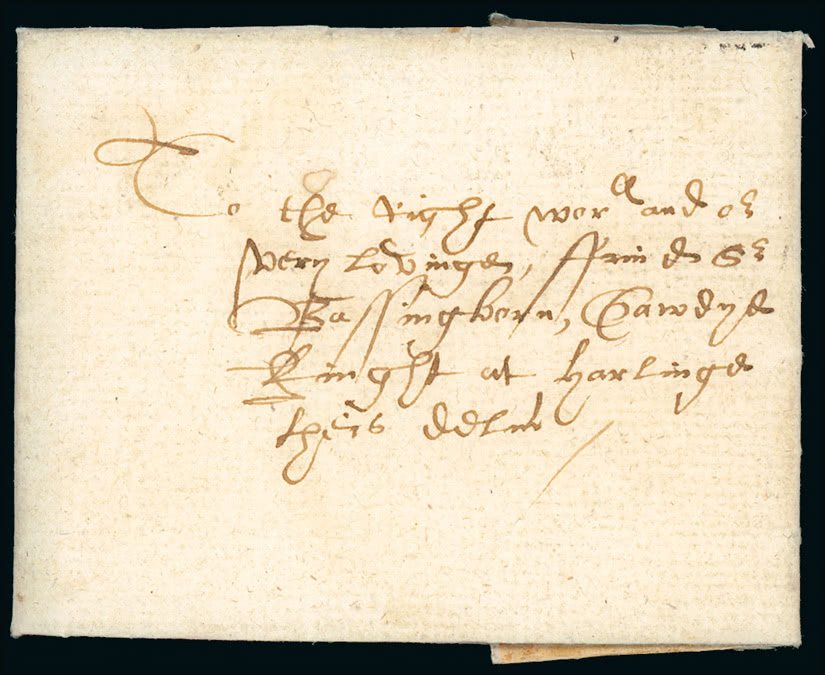 To the right wor^ll and o^r
very lovinge, ffrind S^r
Bassingborn, Gawdye
Knight at harlinge
theis